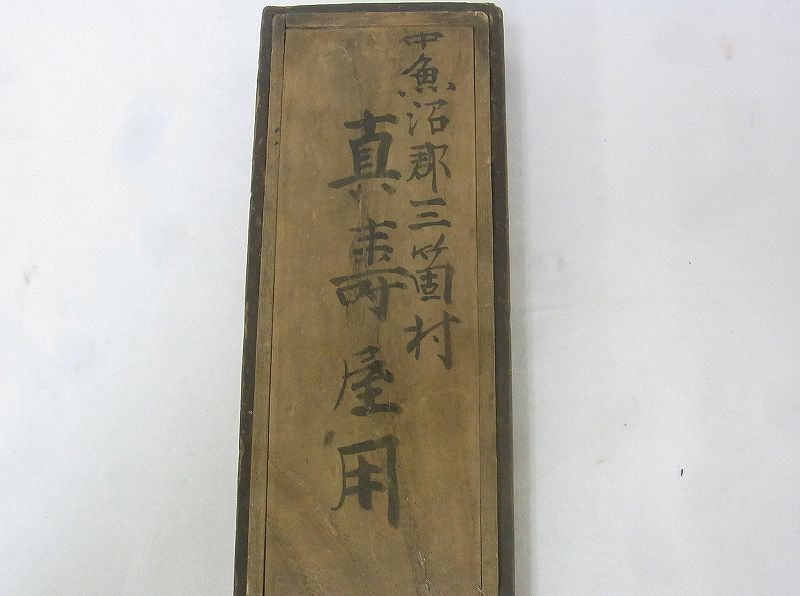 中魚沼郡三箇村
真壽屋用